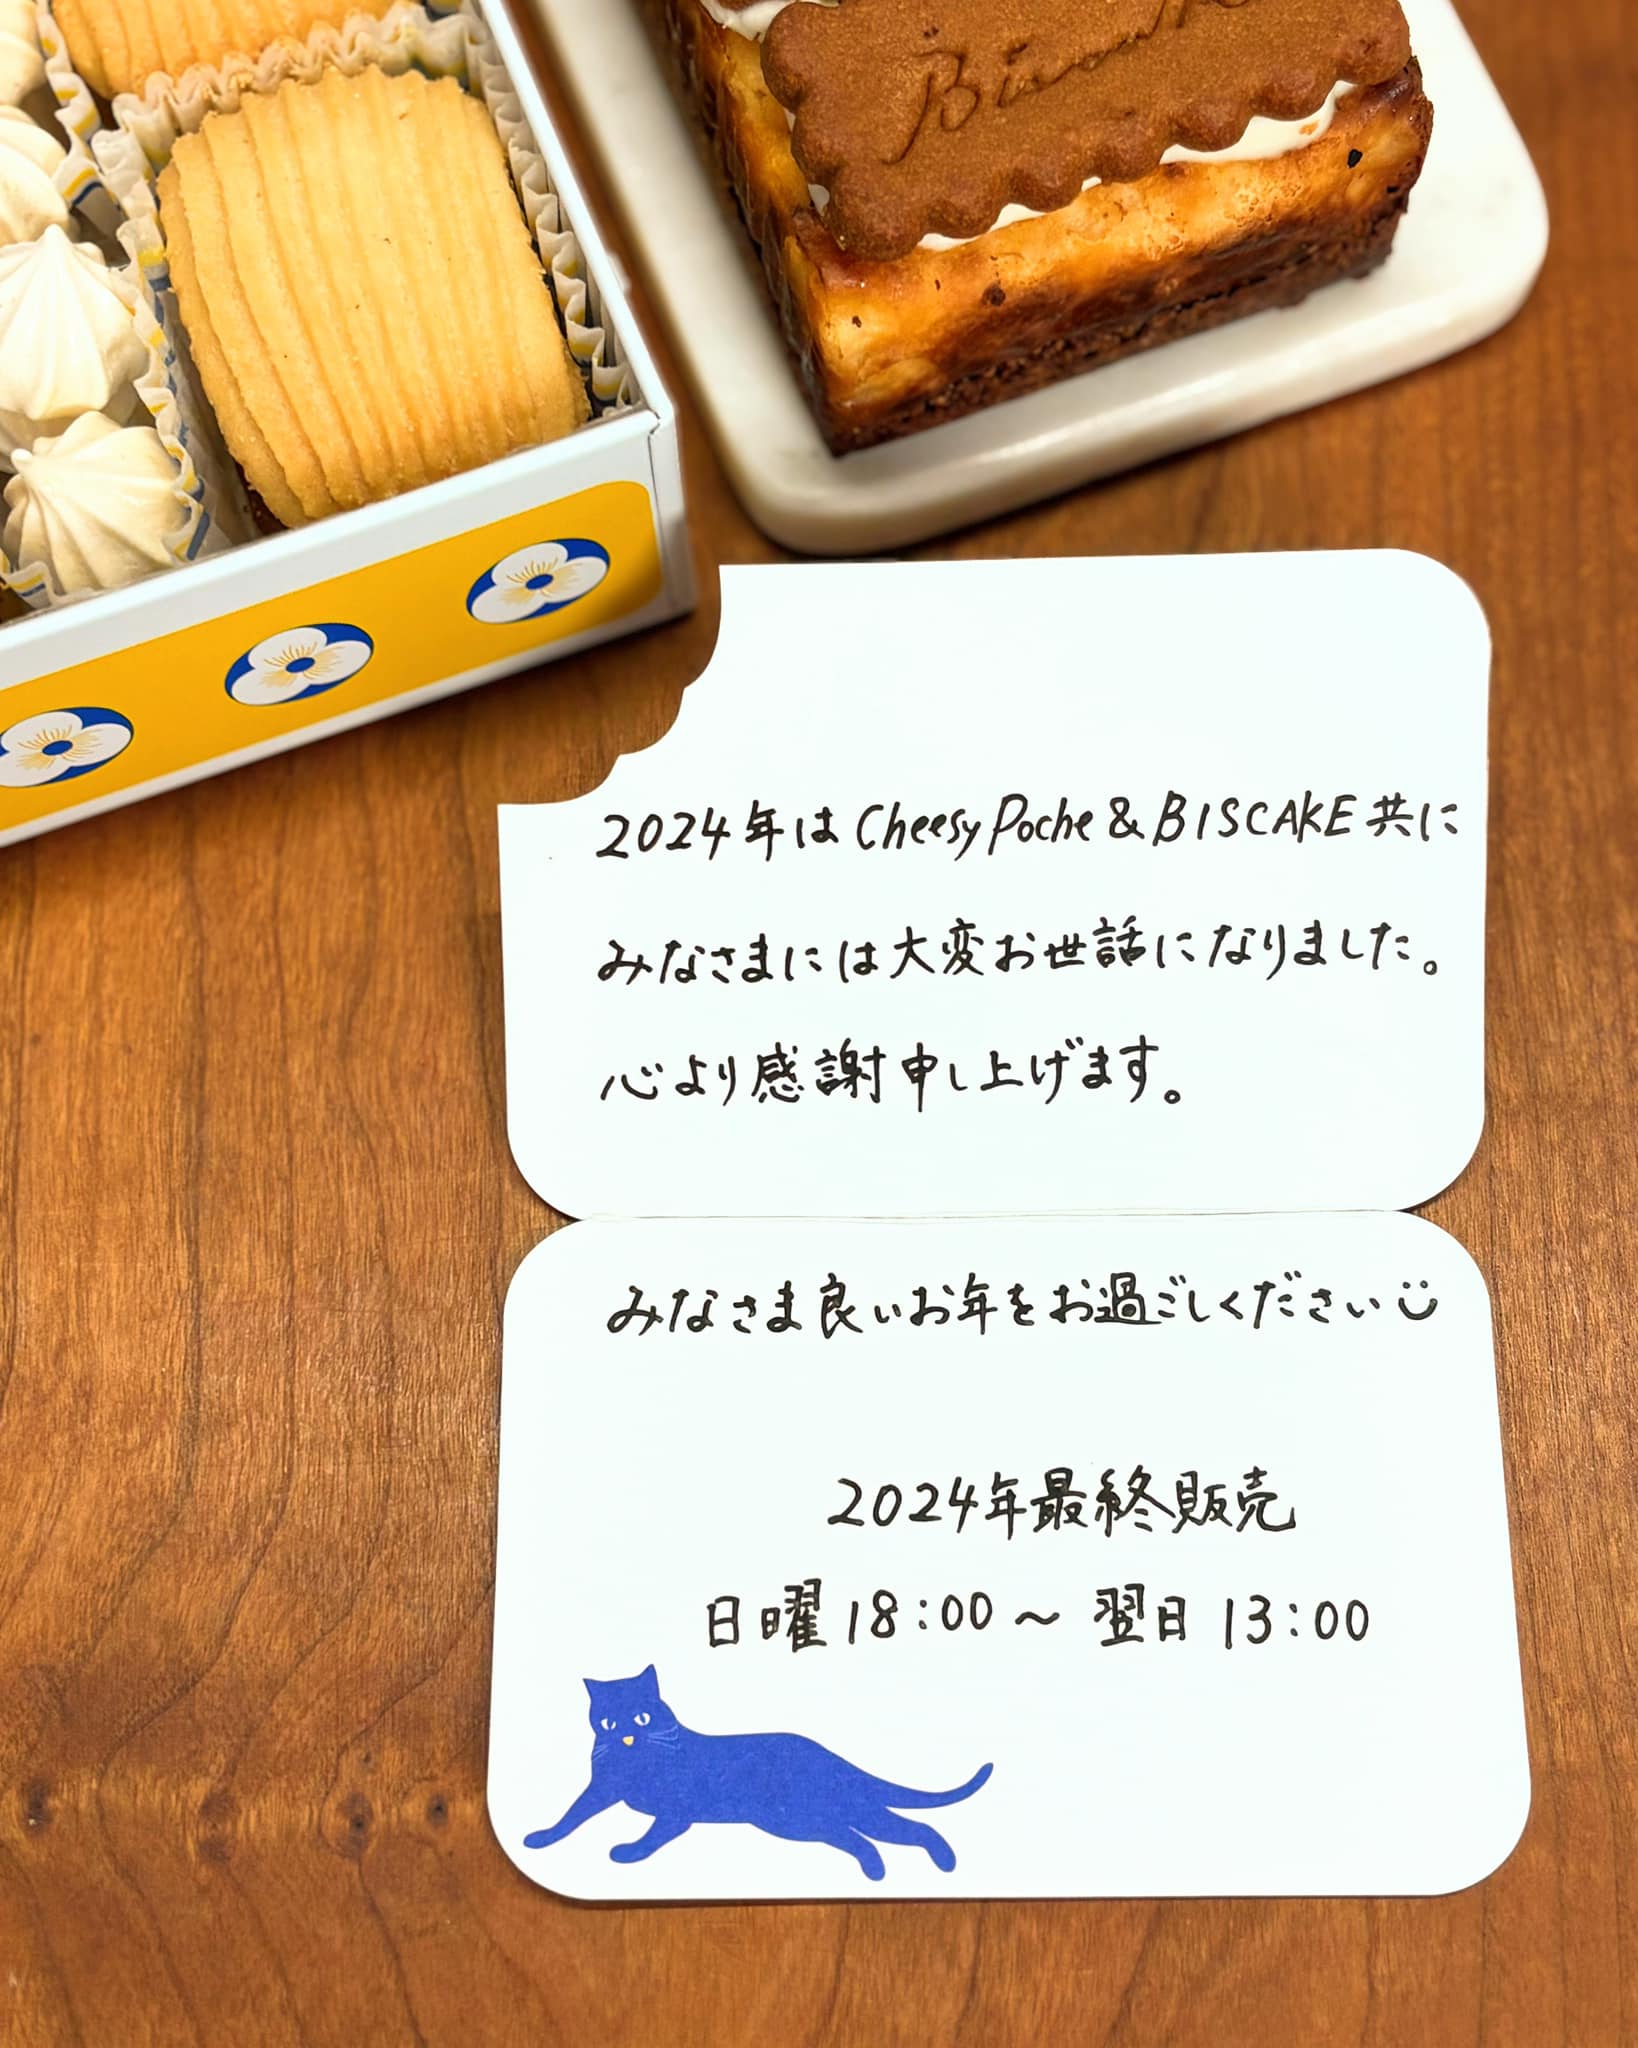 2024年は Cheesy Poche & BISCAKE 共に
みなさまには大変お世話になりました。
心より感謝申し上げます。
みなさま良いお年をお過ごしください
2024年最終販売
日曜 18:00 〜 翌日 13:00